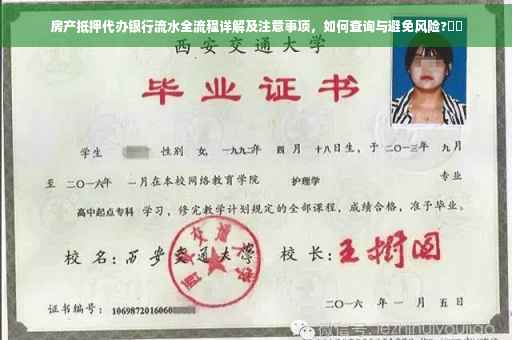 房产抵押代办银行流水全流程详解及注意事项，如何查询与避免风险?
西安交通大学
毕业证书
学生 性别 女,一九九二年 四月 十八日生，于二〇一三年 九月
至 二〇一六年 一月在本校网络教育学院 护理学 专业
高中起点专科 学习，修完教学计划规定的全部课程，成绩合格，准予毕业。
校名：西安交通大学 校长：王树国
证书编号：1069872016060
二〇一六年一月五日
微信号: jezhihuiyoujiao